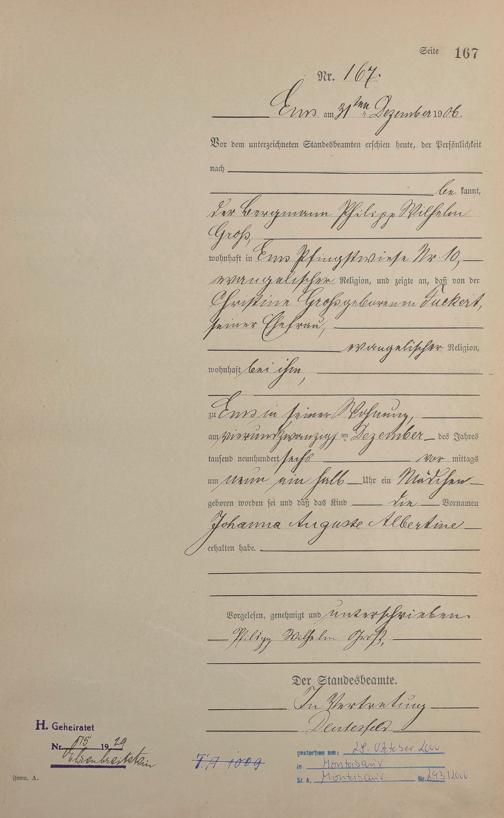 Seite 167
Nr. 167.
Ems am 31ten Dezember 1906.
Vor dem unterzeichneten Standesbeamten erschien heute, der Persönlichkeit
nach
be kannt,
der Bergmann Philipp Wilhelm
Groß,
wohnhaft in Ems Pfingstwiese Nr 10,
evangelischer Religion, und zeigte an, daß von der
Christine Groß geborenen Tuckert,
seiner Ehefrau,
evangelischer Religion,
wohnhaft bei ihm,
zu Ems in seiner Wohnung,
am vierundzwanzigsten Dezember des Jahres
tausend neunhundert sechs vor mittags
um neun ein halb Uhr ein Mädchen
geboren worden sei und daß das Kind die Vornamen
Johanna Auguste Albertine
erhalten habe.
Vorgelesen, genehmigt und unterschrieben.
Philipp Wilhelm Groß,
Der Standesbeamte.
In Vertretung
H. Geheiratet
Nr. 1929
Ehrenbreitstein
gestorben am: 28. Oktober 2000
in Montabaur
St. A. Montabaur Nr. 293/2000